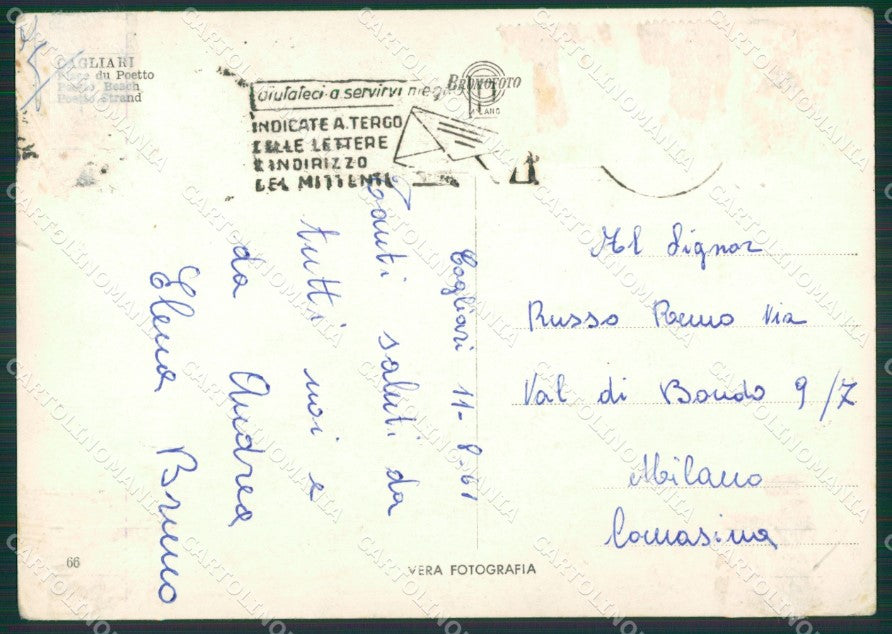 CAGLIARI
Plage du Poetto
Poetto Beach
Poetto Strand
aiutateci a servirvi meglio
INDICATE A TERGO
DELLE LETTERE
L'INDIRIZZO
DEL MITTENTE
BROMOFOTO
MILANO
Cagliari 11-8-61
Tanti saluti da
tutti noi e
da Andrea
Elena Bruno
Al Signor
Russo Remo Via
Val di Bondo 9/7
Milano
Comasina
66
VERA FOTOGRAFIA
CARTOLINOMANIA